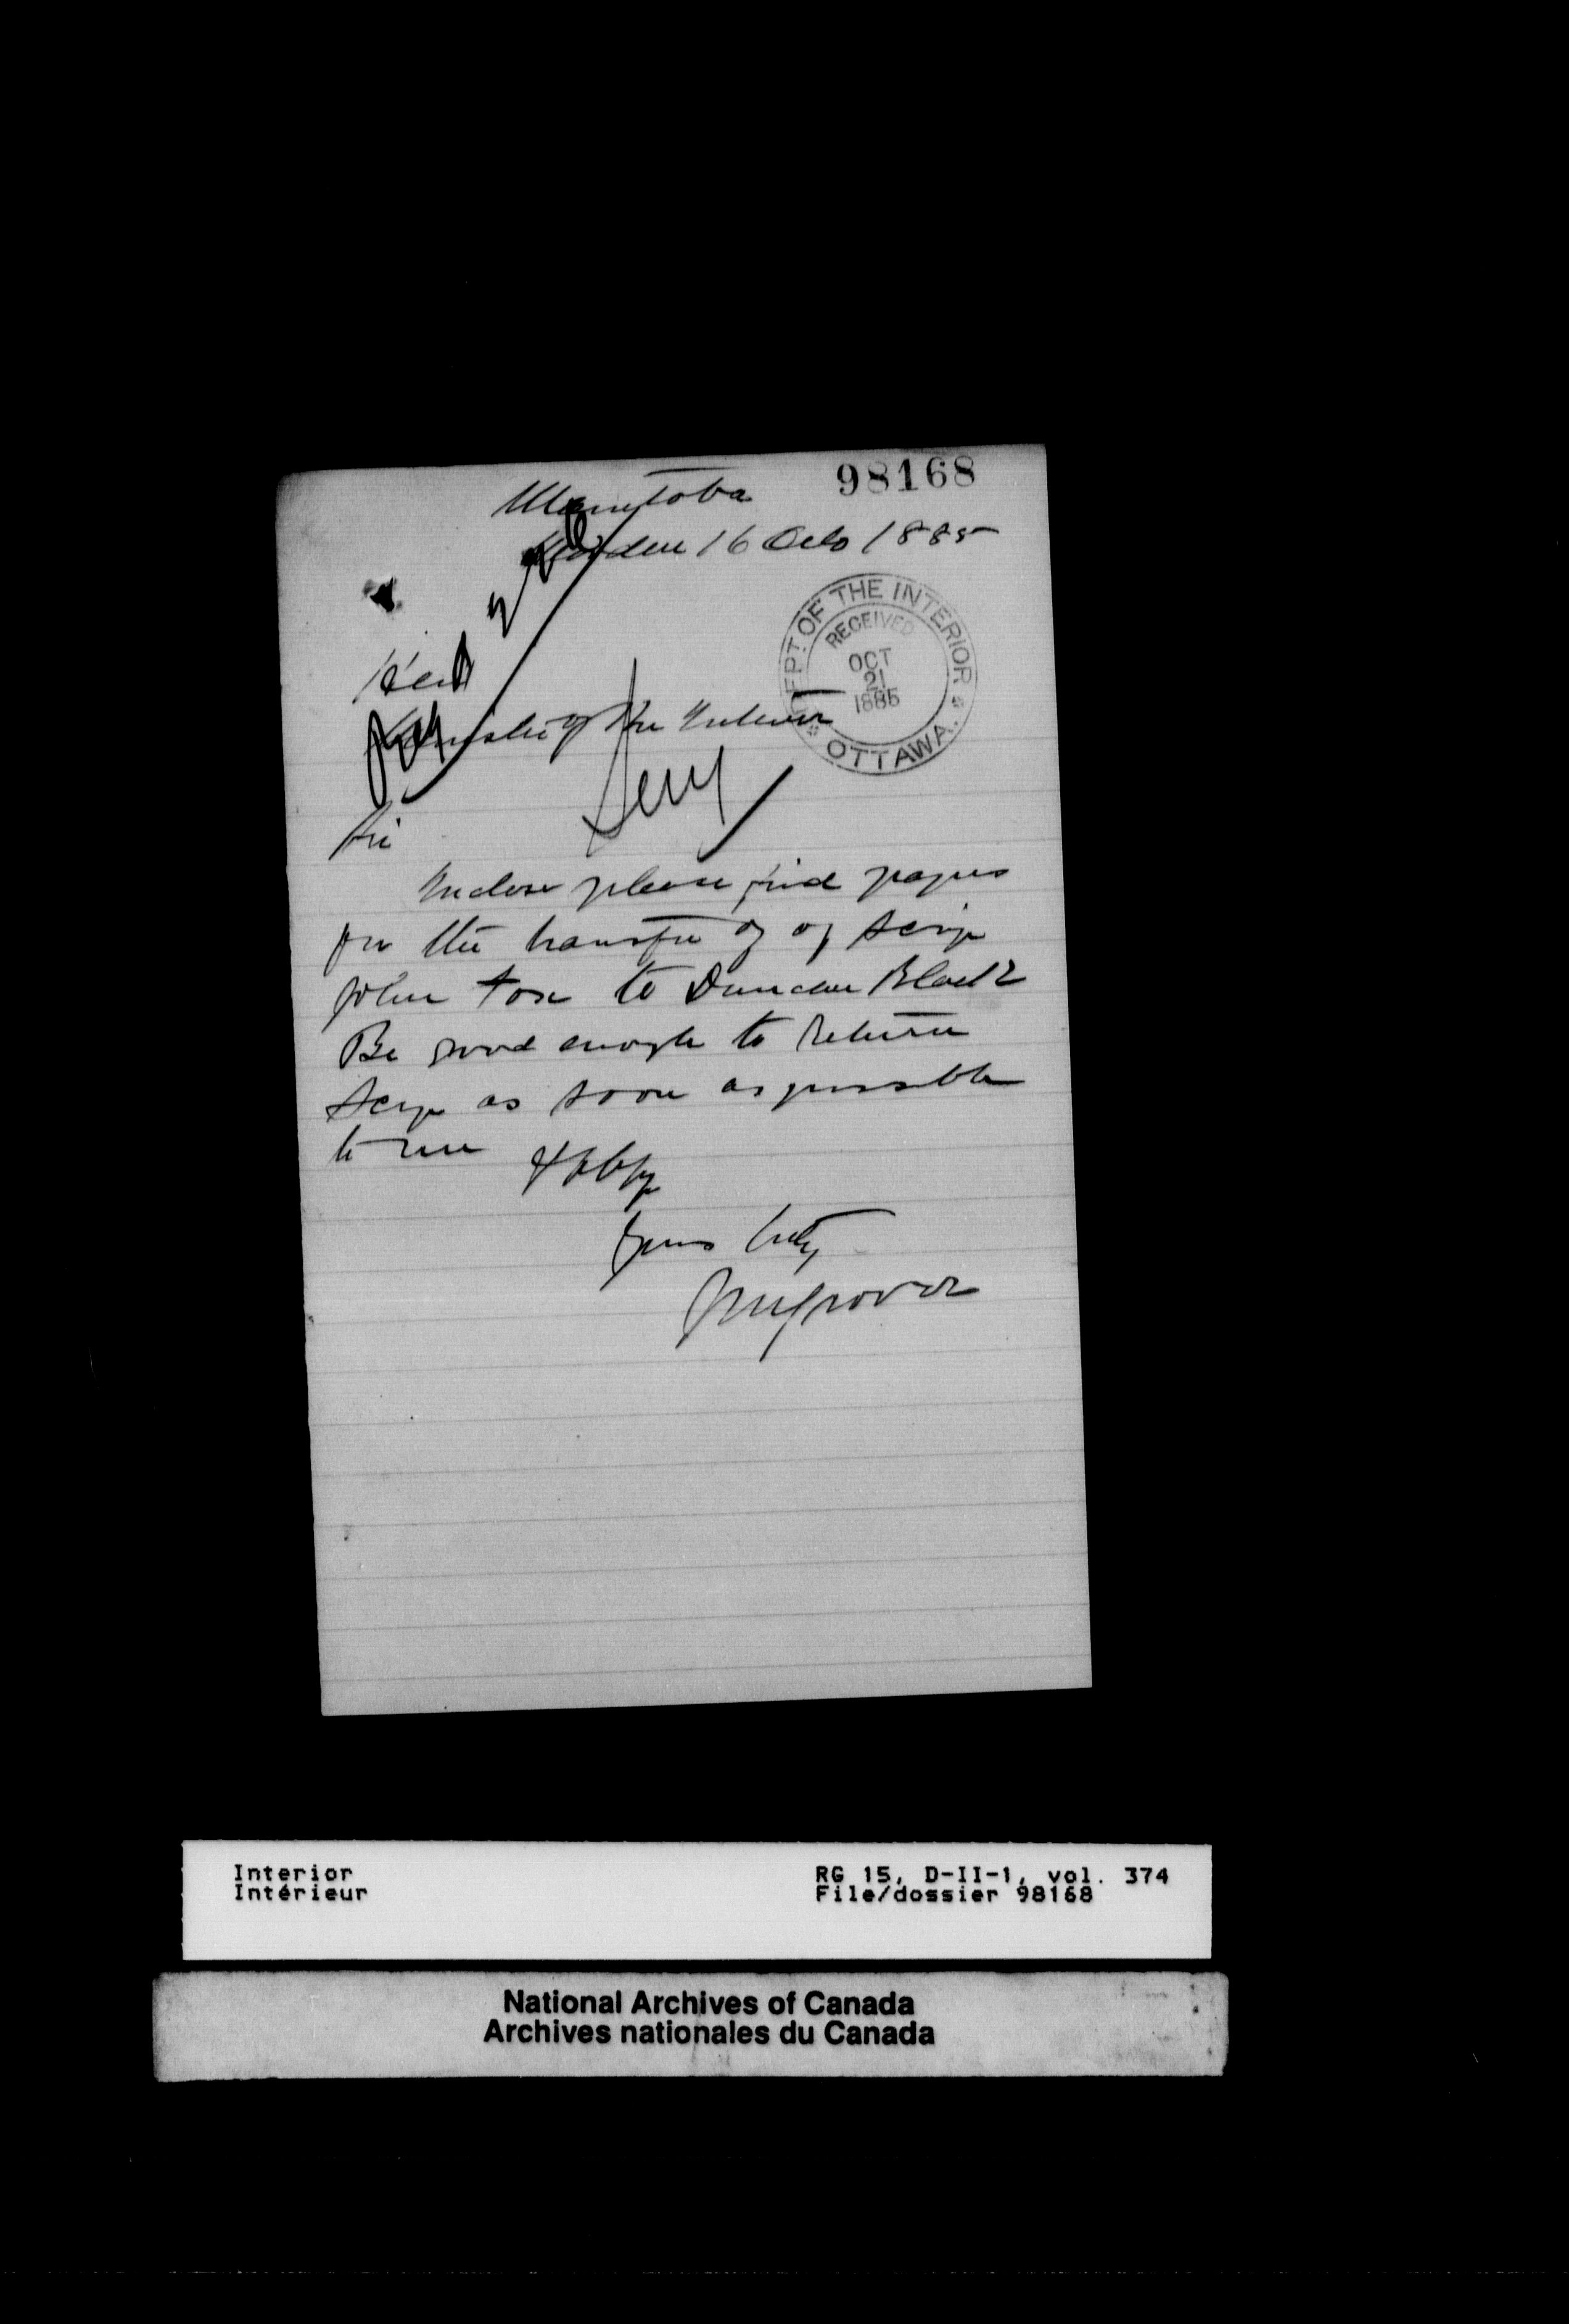 98168
Manitoba
Virden 16 Octo 1885
DEPT OF THE INTERIOR
RECEIVED
OCT
21
1885
OTTAWA.
Minister of the Interior
Sir
Inclose please find papers
for the transfer of of Scrip
John Fox to Duncan Black
Be good enough to Return
Scrip as soon as possible
to me & oblige
Yours truly
Interior
Intérieur
RG 15, D-II-1, vol. 374
File/dossier 98168
National Archives of Canada
Archives nationales du Canada